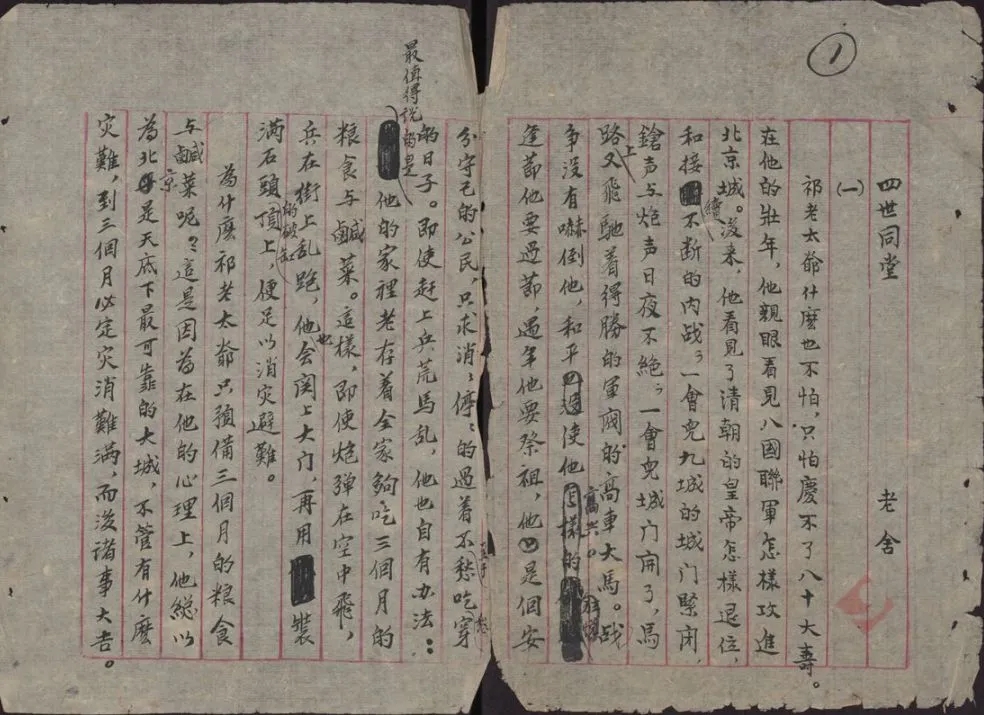 1
四世同堂 老舍
(一)
祁老太爺什麼也不怕,只怕慶不了八十大壽。
在他的壯年,他親眼看見八國聯軍怎樣攻進
北京城。後来,他看見了清朝的皇帝怎樣退位,
和接續不断的内战;一會兒九城的城门緊闭,
鎗声与炮声日夜不絶;一會兒城门開了,馬
路上又飛馳着得勝的軍閥的高車大馬。战
争没有嚇倒他,和平使他高兴。
逢節他要過節,過年他要祭祖,他是個安
分守己的公民,只求消消停停的過着不愁吃穿
的日子。即使赶上兵荒馬乱,他也自有办法:
最值得说的是他的家裡老存着全家够吃三個月的
粮食与鹹菜。這樣,即使炮弹在空中飛,
兵在街上乱跑,他也会関上大门,再用装
满石頭的破缸顶上,便足以消灾避難。
為什麼祁老太爺只預備三個月的粮食
与鹹菜呢?這是因為在他的心理上,他總以
為北京是天底下最可靠的大城,不管有什麼
灾難,到三個月必定灾消難满,而後諸事大吉。